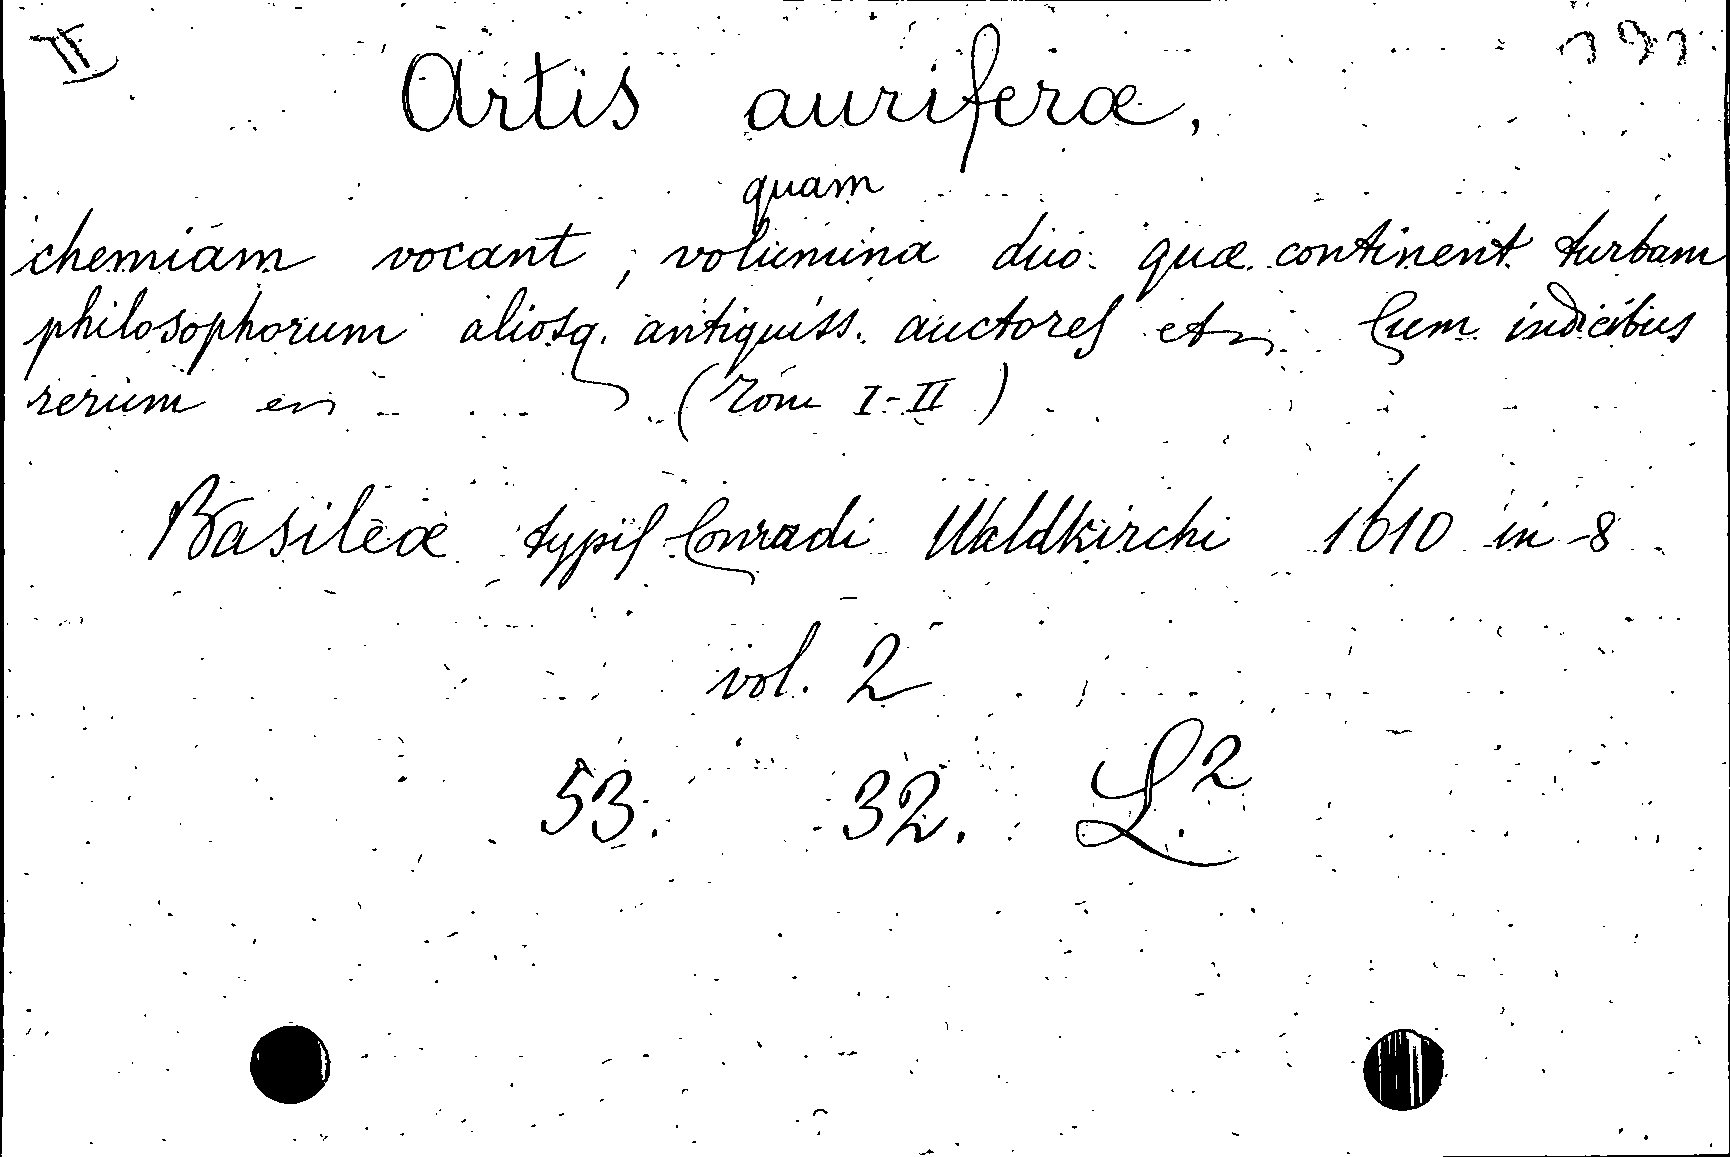 II
Artis auriferæ,
quam
chemiam vocant, volumina duo quæ continent turbam
philosophorum aliosq. antiquiss. auctores etc. Cum indicibus
rerum etc. (Tom I-II)
Basileæ typis Conradi Waldkirchi 1610 in-8
vol. 2
53. 32. L.2